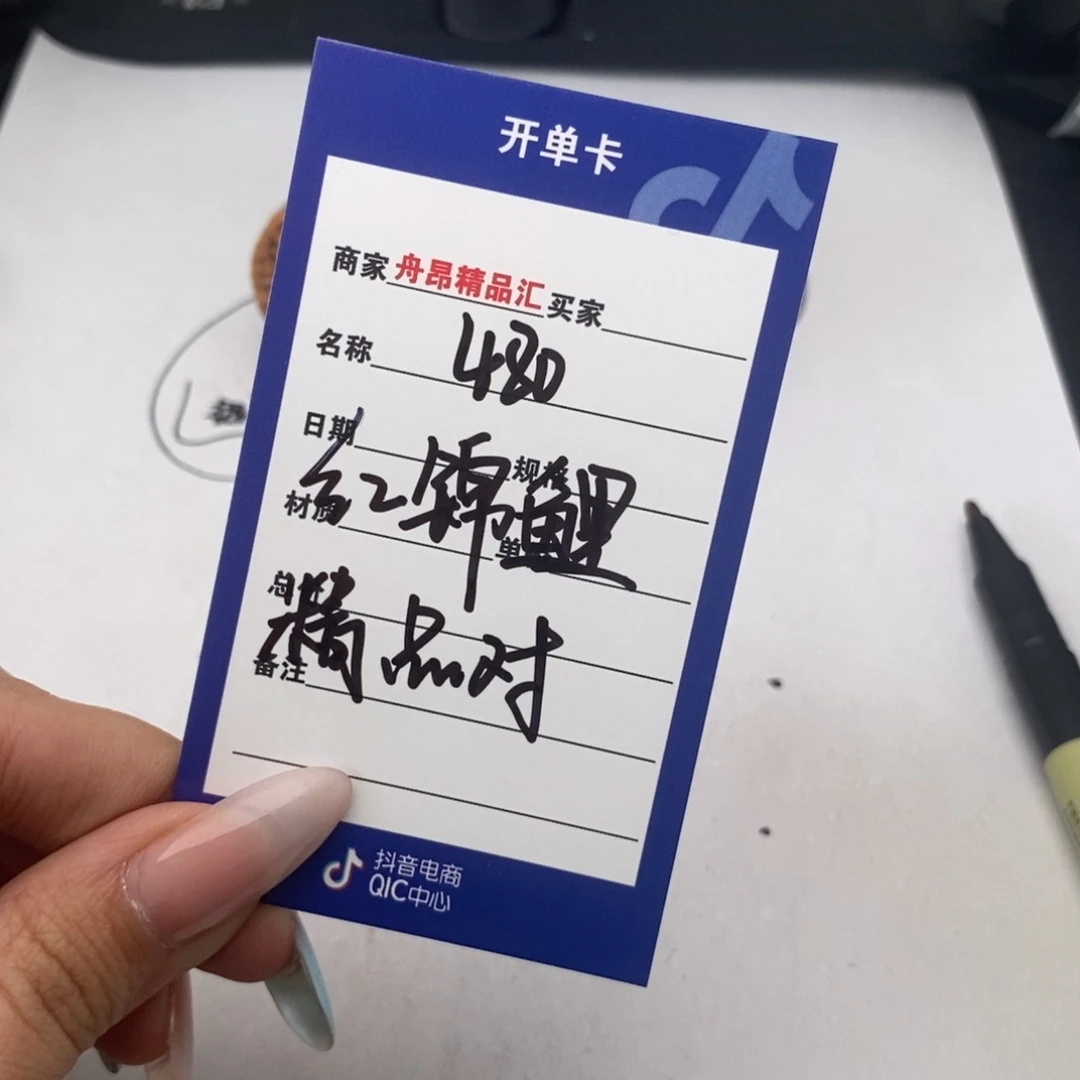 开单卡
商家 舟昂精品汇 买家
名称 480
日期 规格
红锦鲤
材质 单
总
精品对
备注
抖音电商
QIC中心